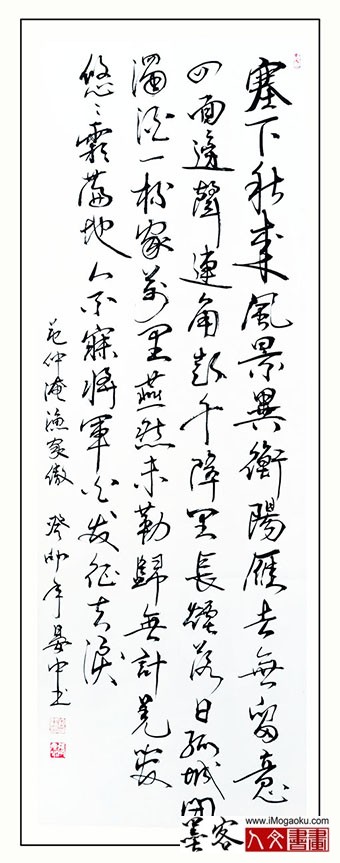 塞下秋來風景異衡陽雁去無留意
四面邊聲連角起千障里長煙落日孤城閉
濁酒一杯家萬里燕然未勒歸無計羌管
悠〻霜滿地人不寐將軍白发征夫淚
范仲淹漁家傲 癸卯年晏中书
墨客
www.iMogaoku.com
人文書畫